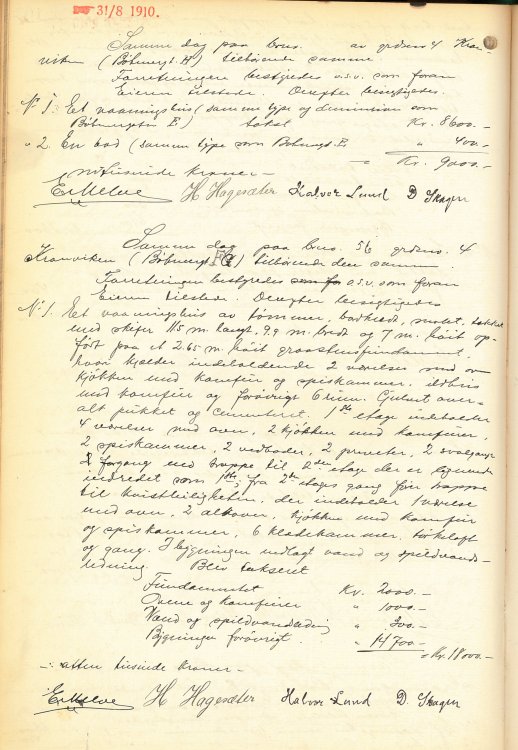 31/8 1910.
Samme dag paa brno. av grdsno. 4 Kran-
viken (Bolævngt. H) tilhörende samme.
Forretningen bestyredes o.s.v. som foran
Eieren tilstede. Derefter besigtigedes
No 1. Et vaaningshus (samme type og dimension som
E) takst Kr. 8600.-
" 2. En bod (samme type som E " 400.-
= Kr. 9000.-
nitusinde kroner -
H Hagesæter Halvor Lund D. Skagen
Samme dag paa brno. 56 grdsno. 4
Kranviken ( G) tilhörende den samme.
Forretningen bestyredes som for o.s.v. som foran
Eieren tilstede. Derefter besigtigedes
No 1. Et vaaningshus av tömmer, bordklædt, malet, tækket
med skifer 11.5 m. langt, 9.9 m. bredt og 7 m. höit op-
fört paa et 2.65 m. höit graastensfundament,
hvori kjælder indeholdende 2 værelser med ovn
kjökken med komfur og spiskammer, ildhus
med komfur og forövrigt 6 rum. Gulvet over-
alt pukket og cementeret. 1ste etage indeholder
4 værelser med ovn, 2 kjökken med komfurer,
2 spiskammer, 2 vedboder, 2 priveter, 2 svalgange
2 forgang med trappe til 2den etage der er ligedan
indredet som 1ste; fra 2den etages gang förer trappe
til kvistleiligheten, der indeholder 1 værelse
med ovn, 2 alkover, kjökken med komfur
og spiskammer, 6 klædekammer, törkeloft
og gang. I bygningen indlagt vand og spildvands-
ledning. Blev takseret
Fundamentet Kr. 2000.-
Ovne og komfurer " 1000.-
Vand og spildvandsledning " 300.-
Bygningen forövrigt. " 14700.-
= Kr. 18000.-
-:- atten tusinde kroner -
H Hagesæter Halvor Lund D. Skagen